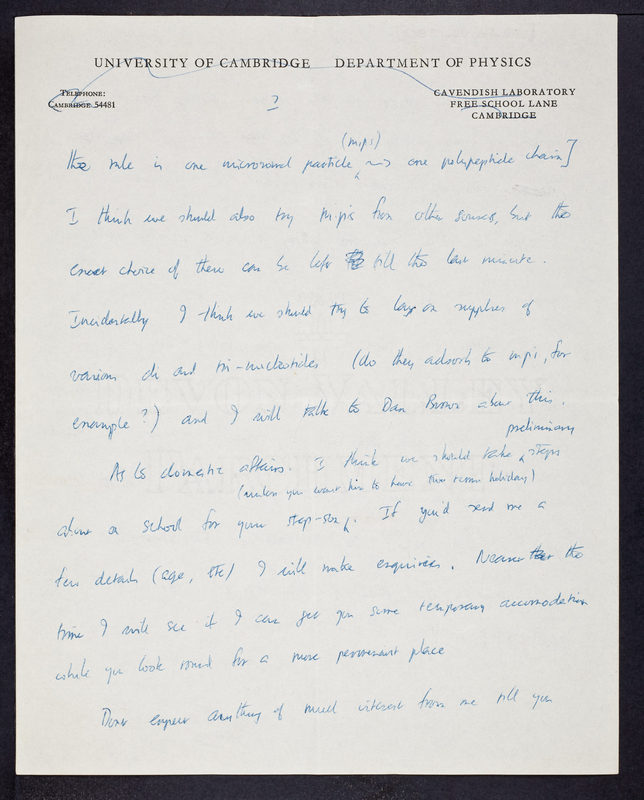 UNIVERSITY OF CAMBRIDGE DEPARTMENT OF PHYSICS
TELEPHONE:
CAMBRIDGE 54481
CAVENDISH LABORATORY
FREE SCHOOL LANE
CAMBRIDGE
2
(mips)
the rule is one microsomal particle, one polypeptide chain]
I think we should also try mips from other sources, but the
exact choice of these can be left till the last minute.
Incidentally I think we should try to lay on supplies of
various di and tri-nucleotides (do they adsorb to mips, for
example?) and I will talk to Dan Brown about this.
preliminary
As to domestic affairs. I think we should take steps
(unless you want him to have two terms holiday)
about a school for your step-son. If you'd send me a
few details (age, etc) I will make enquiries. Nearer the
time I will see if I can get you some temporary accomodation
while you look round for a more permanent place
Don't expect anything of much interest from me till you